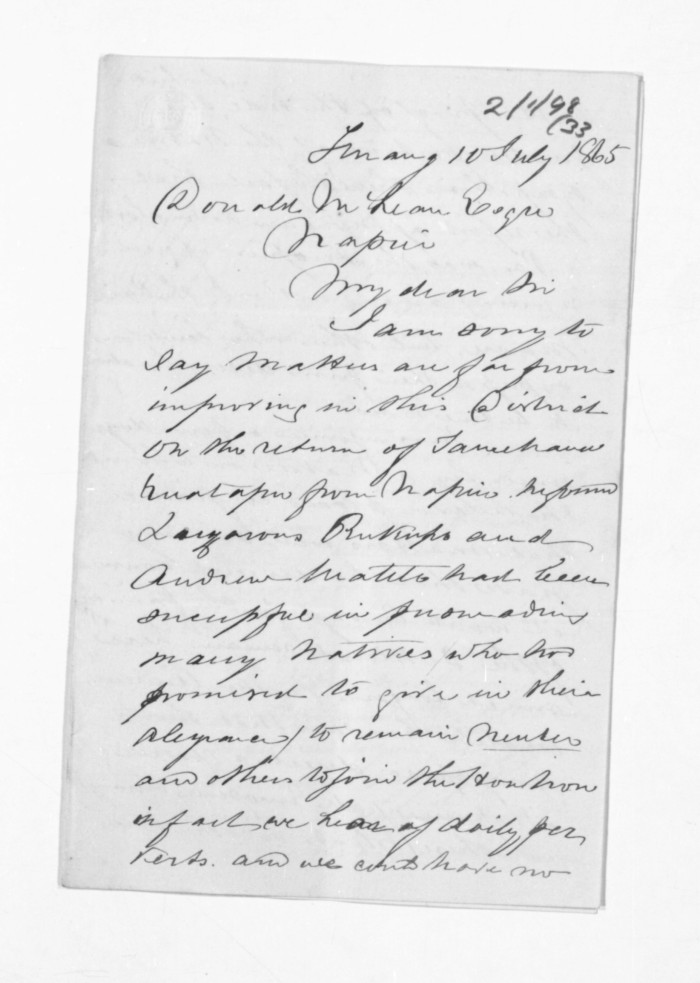 2/1/98
(33
10 July 1865
Donald McLean Esqre
Napier
My dear Sir
I am sorry to
say Matters are far from
improving in this District
on the return of
from Napier he found
Lazarous and
Andrew had been
in persuading
many Natives (who had
promised to give in their
alegance) to remain Neuter
and others to join the Hou Hou
in fact we hear of daily per
verts. and we can have no